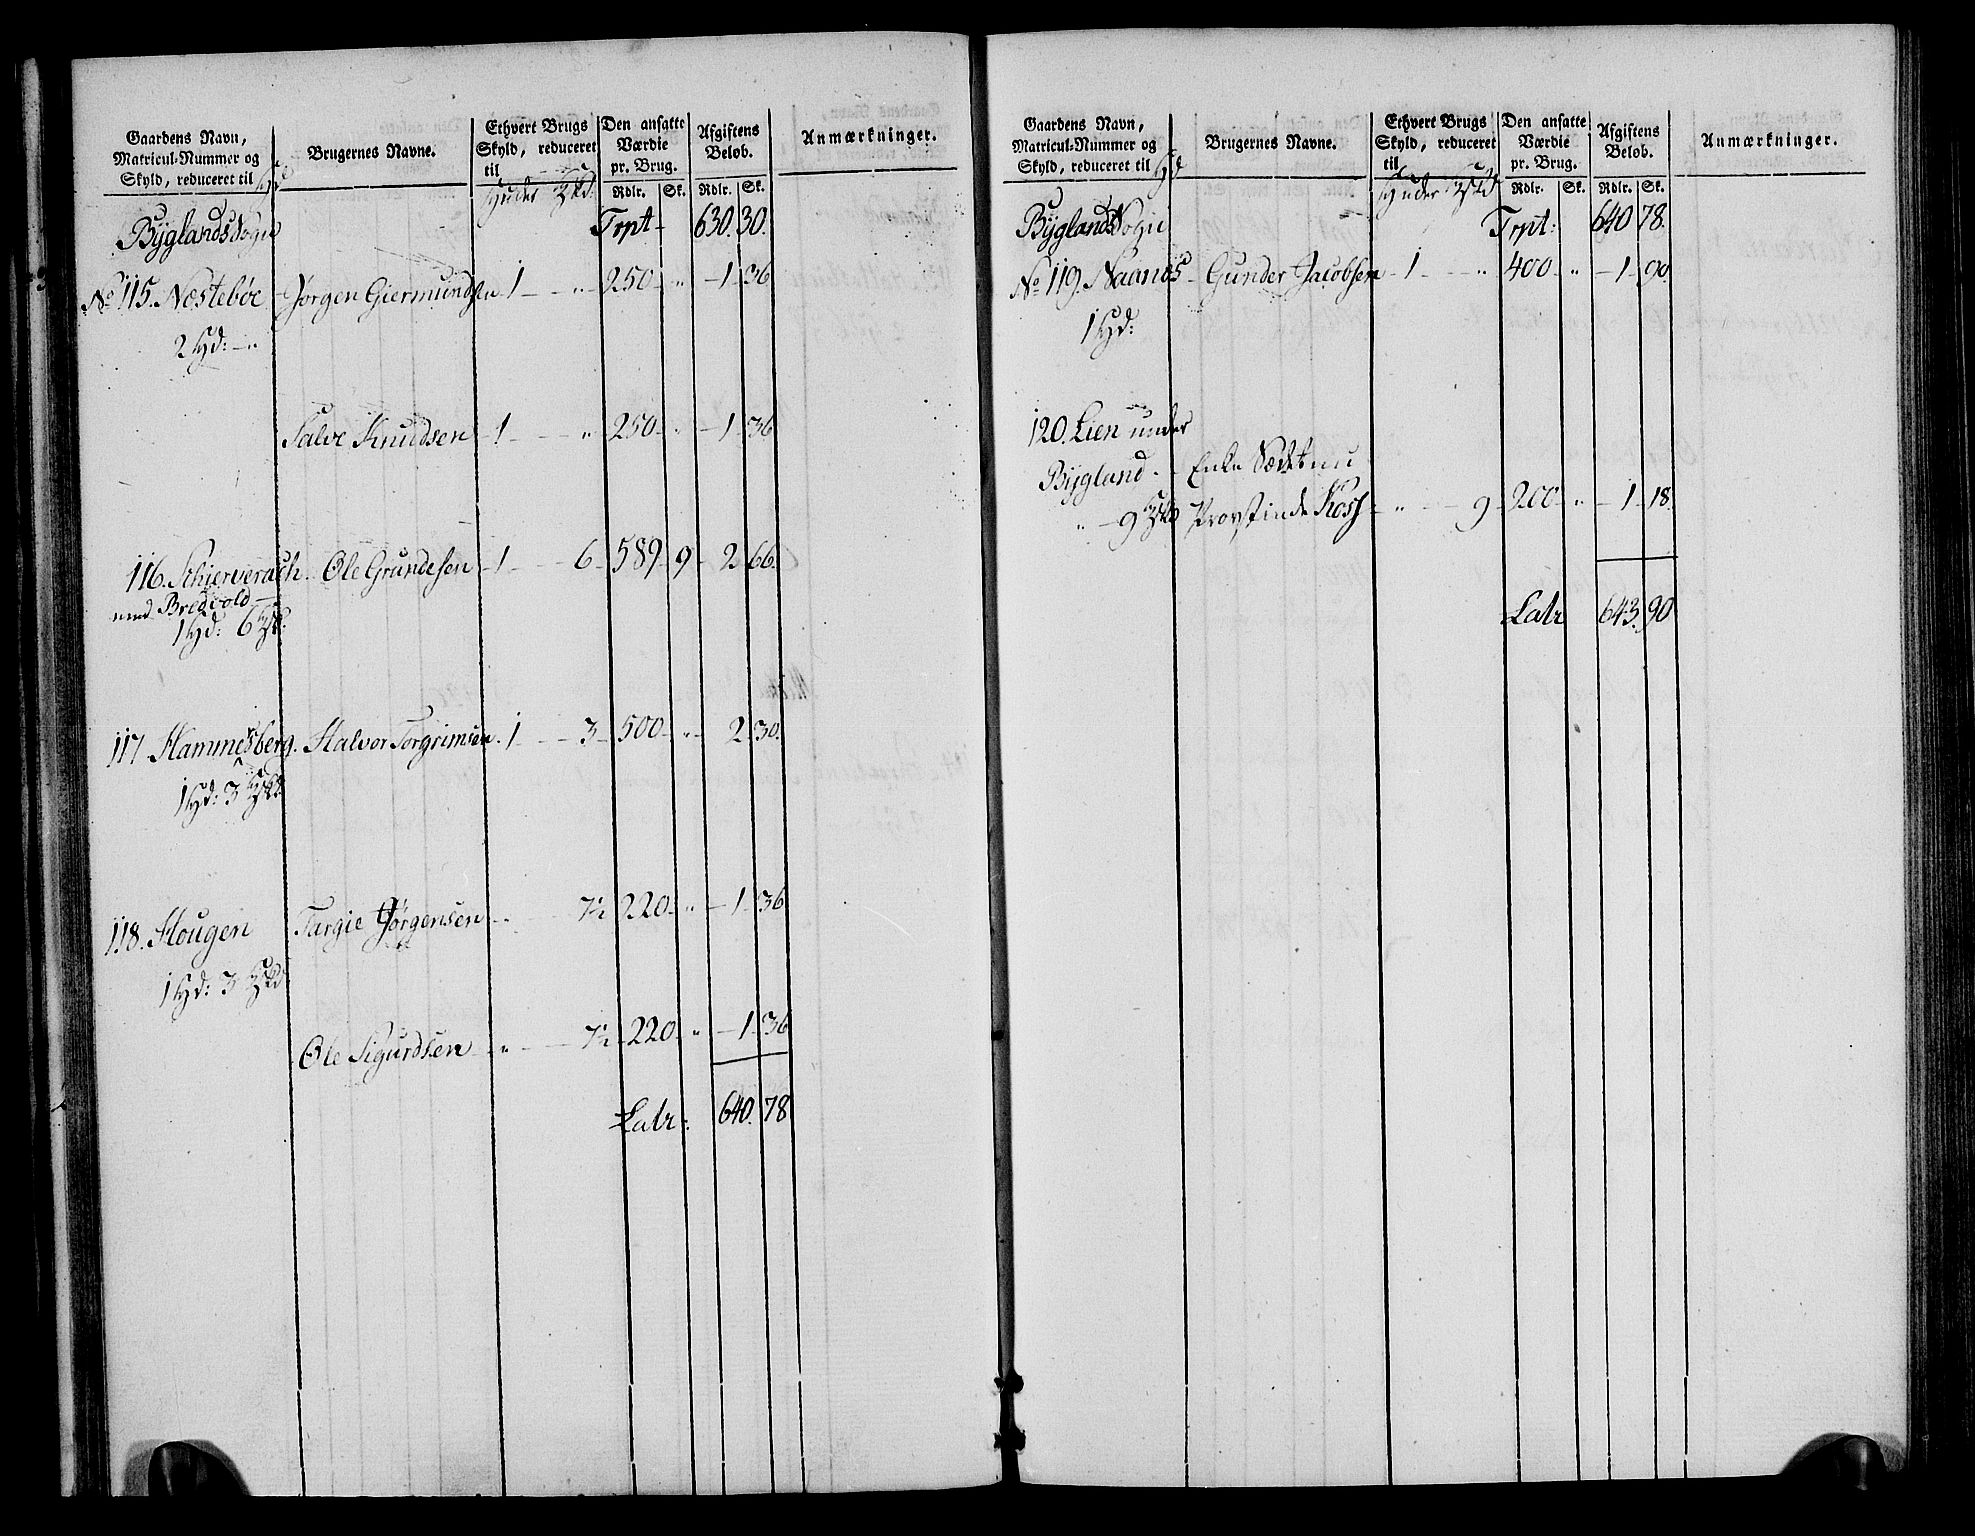 Gaardens Navn, Matricul-Nummer og Skyld, reduceret til Hd
Brugernes Navne.
Ethvert Brugs Skyld, reduceret til Huder
Den ansatte Værdie pr. Brug. Rdlr. Sk.
Afgiftens Beløb. Rdlr. Sk.
Anmærkninger.
Byglands Sogn Trpt 630. 30.
No 115. Næstebøe Jørgen Giermundsen 1 " 250 " 1 36
2 Hd: "
Salve Knudsen 1 " 250 " 1 36
116. Schierverach Ole Grundesen 1 6 589 9 2 66.
med Bredvold
1 Hd: 6
117 Hammersberg. Halvor Torgrimsen 1 3 500 " 2 30.
1 Hd: 3
118. Hougen Targie Jørgensen " 7½ 220 " 1 36
1 Hd: 3
Ole Sigurdsen " 7½ 220 " 1 36
Latr: 640. 78
Gaardens Navn, Matricul-Nummer og Skyld, reduceret til Hd
Brugernes Navne.
Ethvert Brugs Skyld, reduceret til Huder
Den ansatte Værdie pr. Brug. Rdlr. Sk.
Afgiftens Beløb. Rdlr. Sk.
Anmærkninger.
Byglands Sogn Trpt: 640 78.
No 119. Naanes Gunder Jacobsen 1 " 400 " 1 90.
1 Hd:
120. Lien under
Bygland Enke Sædet nu
" 9 Provstinde Koss " 9 200 " 1 18.
Latr 643. 90